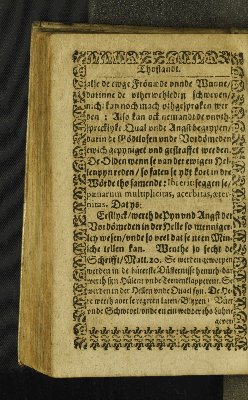 Thostandt.
alle de ewge Fröude vnde Wunne/
darinne de vtherwehleden schwuen/
nicht kan noch mach vthgespraken wer
den: Also kan ock nemandt de vnuth
sprecklyke Qual vnde Angst begrypen/
darin de Gödtlosen vnde Vordömeden
ewich gepyniget vnd gestraffet werden
De Olden wenn se van der ewigen Hel-
lenpyn reden / so faten se ydt kort in dre
Wörde tho samende: Ibi erit, seggen se,
pœnarum multiplicitas, acerbitas, æter-
nitas. Dat ys:
Erstlyck / werth de Pyn vnd Angst der
Vordömeden in der Helle so mennigер-
ley wesen / vnde so veel dat se neen Min-
sche tellen kan. Wente so secht de
Schrifft / Matt. 20. Se werden geworpen
werden in de üterste Düsternisse henuth / dar
werth syn Hülent vnde Teenenklapperent. Se
werden in der Hellen vnde Quaal syn. De He-
re werth auer se regenen laten / Blixen / Vür
vnde Schweuel / vnde en ein wedder tho lohne
geuen